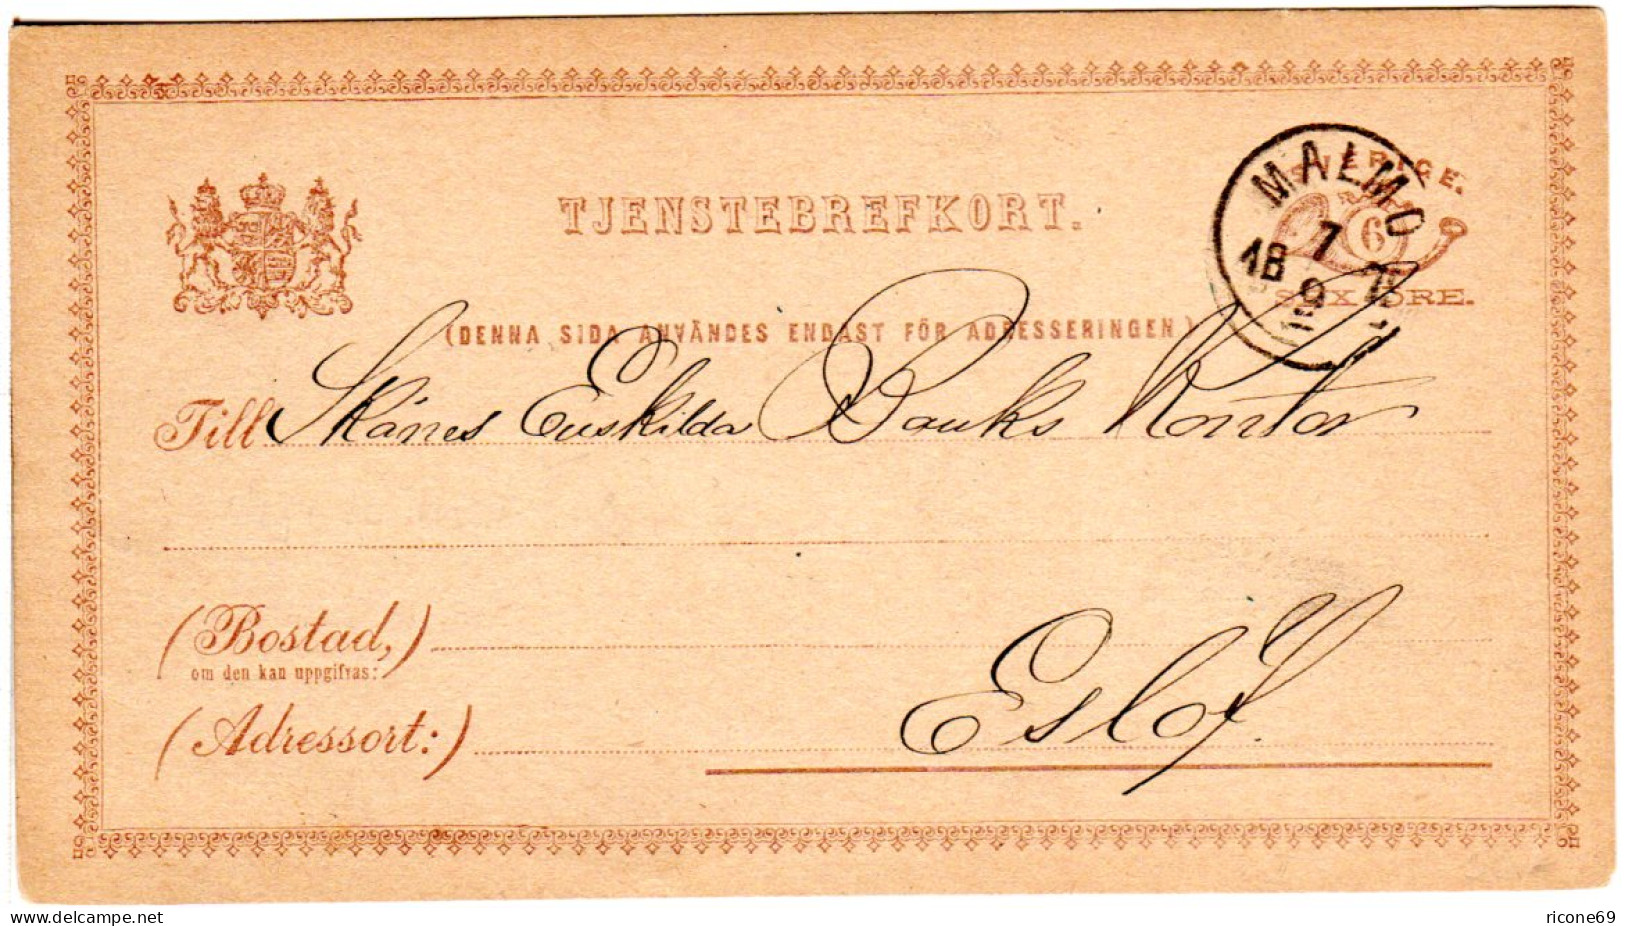 SVERIGE.
MALMÖ
7
18
9
6
SEX ÖRE.
TJENSTEBREFKORT.
(DENNA SIDA ANVÄNDES ENDAST FÖR ADRESSERINGEN.)
Till Skånes Enskilda Banks Kontor
(Bostad,)
om den kan uppgifvas:
(Adressort:) Eslöf.
www.delcampe.net
ricone69